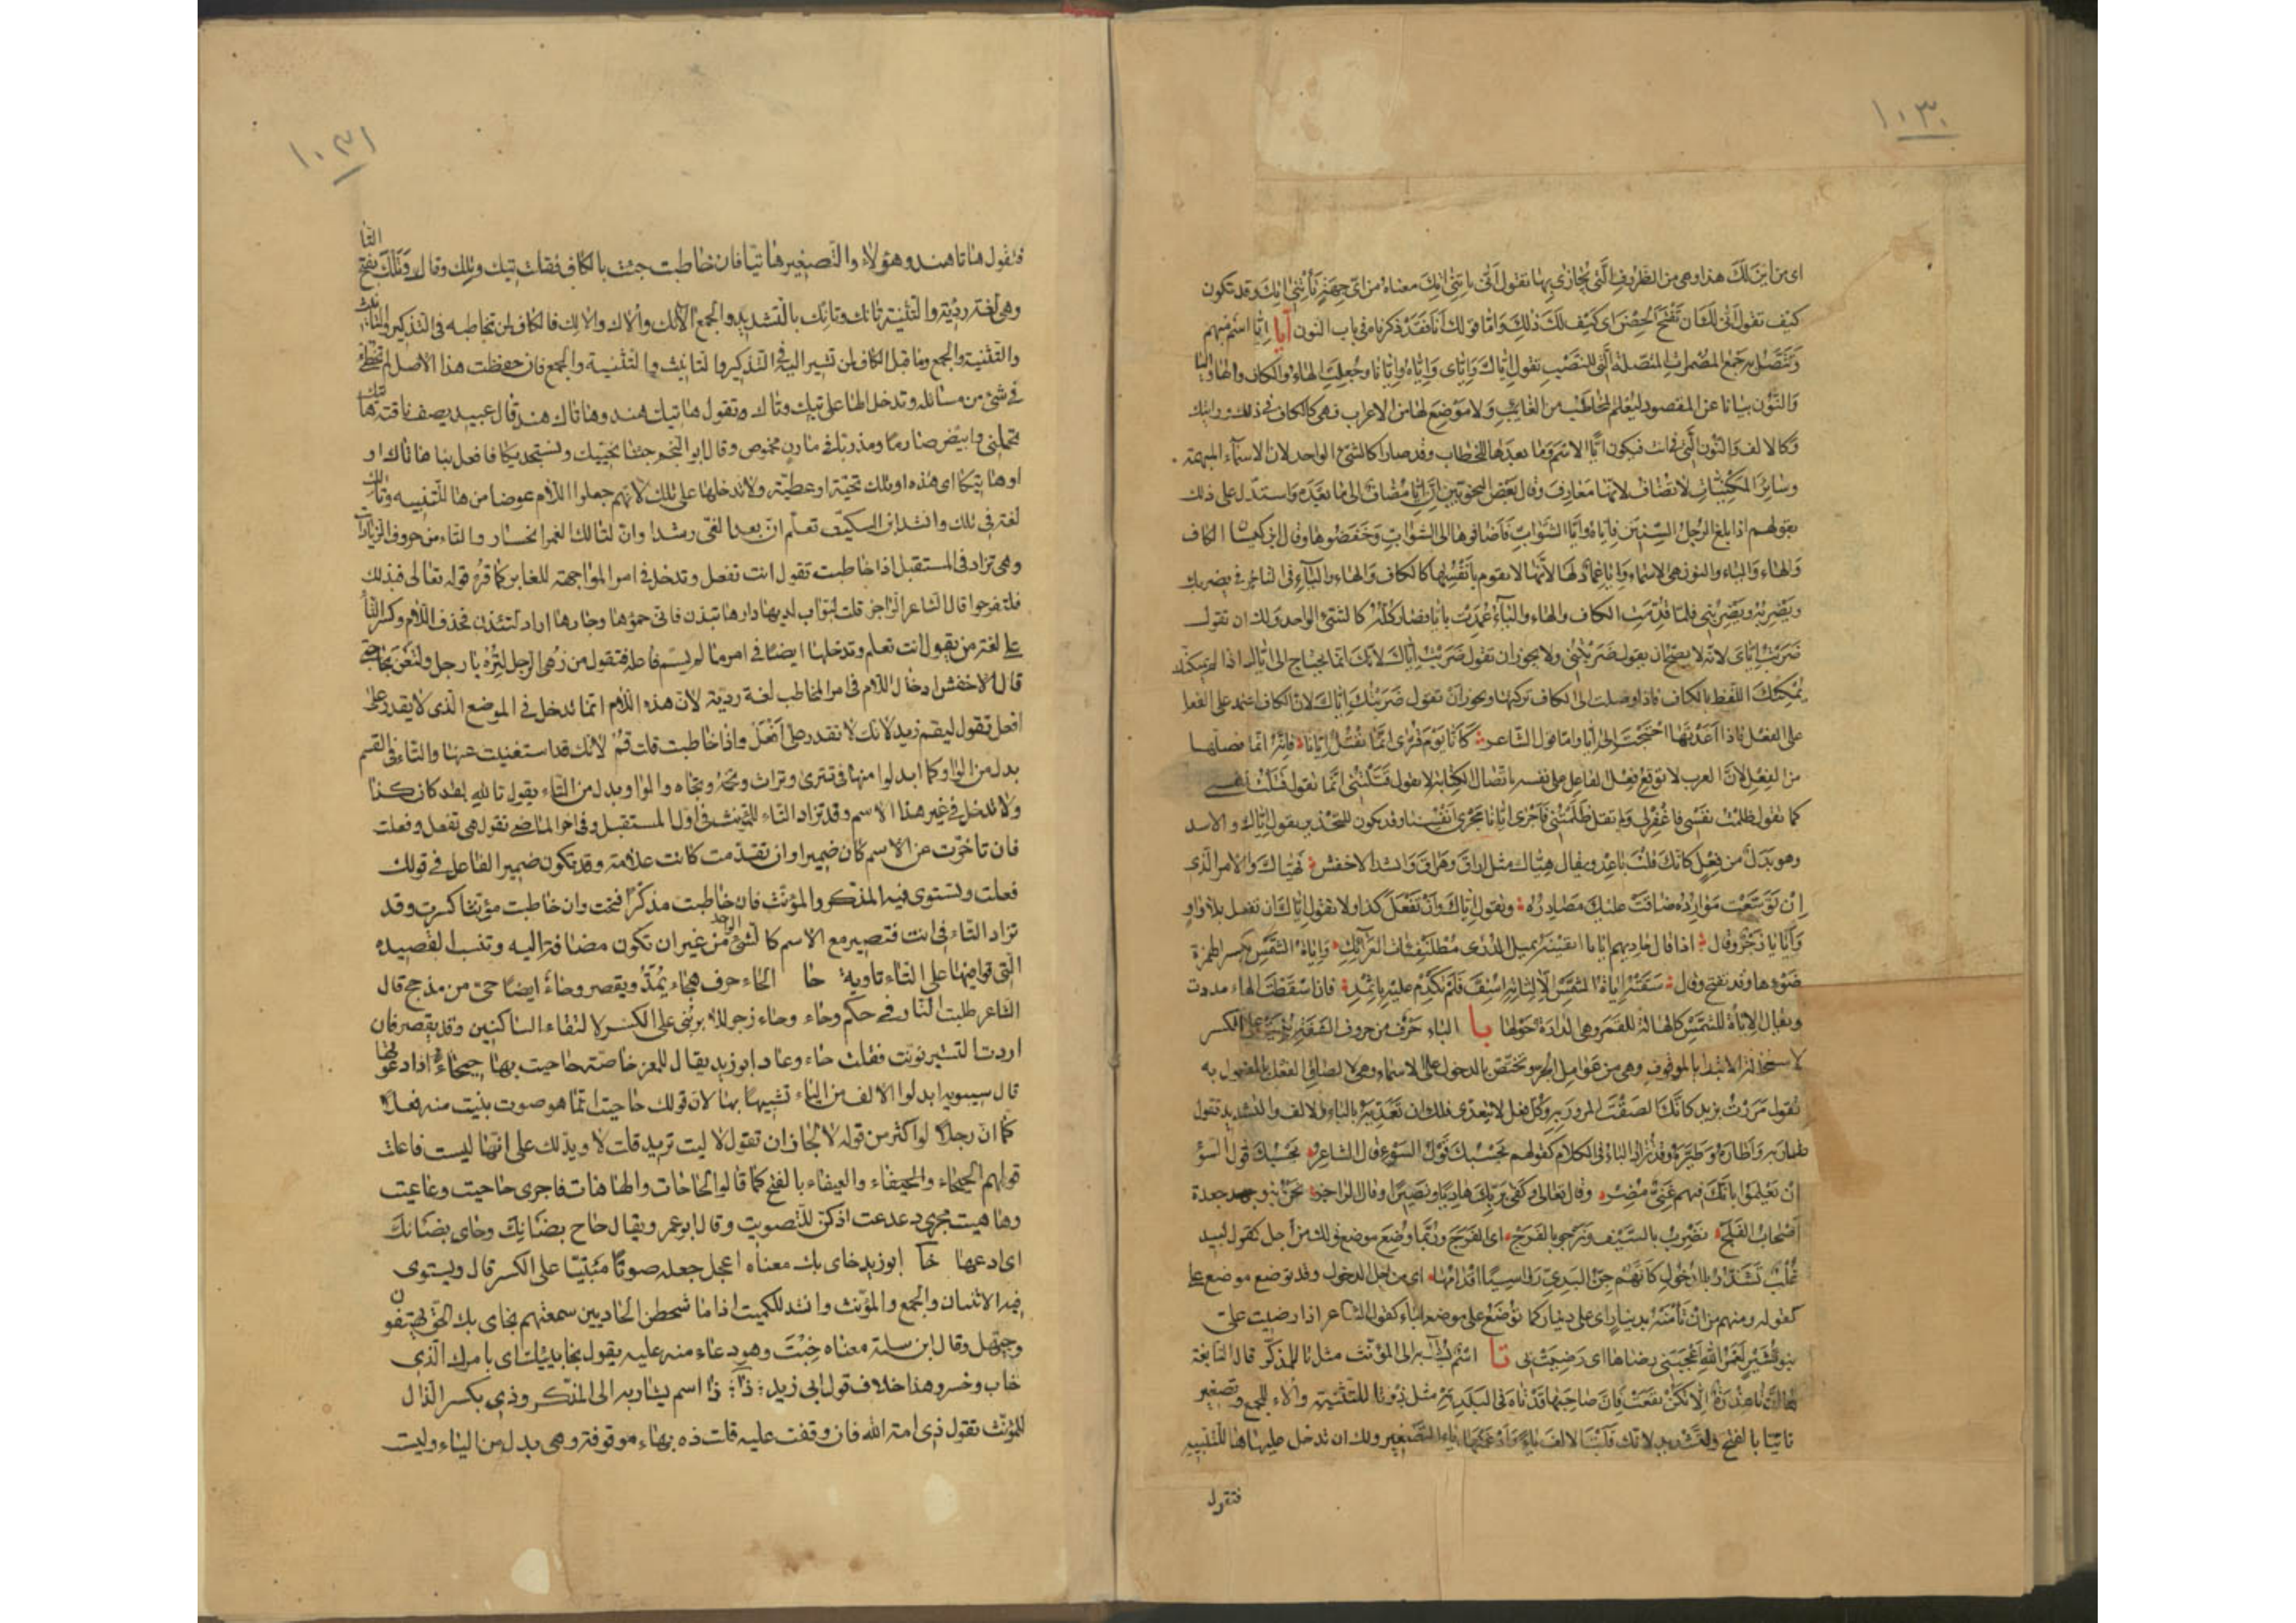 ١٠٣٠
اى من اين لك هذا وهى من الظروف التى يجازى بها تقول انى تاتنى اتك معناه من اى جهة تاتنى اتك وقد تكون
كيف تقول انى لك ان تفتح الحصن اى كيف لك ذلك واما قولك انا فقد ذكرناه فى باب النون أيا ايا اسم مبهم
وتتصل به جميع المضمرات المتصلة التى للنصب تقول اياك واياى واياه وايانا وجعلت الهاء والكاف والهاء واليا
والنون بيانا عن المقصود ليعلم المخاطب من الغايب ولا موضع لها من الاعراب فهى كالكاف فى ذلك وارايتك
وكالالف والنون التى فى انت فيكون ايا الاسم وما بعدها للخطاب وقد صارا كالشئ الواحد لان الاسماء المبهمة
وساير المكنيات لا تضاف لانها معارف وقال بعض النحويين ان ايا مضاف الى ما بعده واستدل على ذلك
بقولهم اذا بلغ الرجل الستين فاياه وايا الشواب فاضافوها الى الشواب وخفضوها وقال ابن كيسان الكاف
والهاء والياء والنون هى الاسماء وايا عماد لها لانها لا تقوم بانفسها كالكاف والهاء والياء فى التاخر فى يضربك
ويضربه ويضربنى فلما قدمت الكاف والهاء والياء عمدت بايا فصار كله كالشئ الواحد ولك ان تقول
ضربت اياى لانه لا يصح ان يقول ضربتنى ولا يجوز ان تقول ضربت اياك لانك انما تحتاج الى اياك اذا لم يمكنك
يمكنك اللفظ بالكاف فاذا وصلت الى الكاف تركتها ويجوز ان تقول ضربتك اياك لان الكاف اعتمد على الفعل
على الفعل فاذا اعدتها احتجت الى ايا واما قول الشاعر كانا يوم قرى انما نقتل ايانا فانه انما فصلها
من الفعل لان العرب لا توقع فعل الفاعل على نفسه باتصال الكناية لا تقول قتلتنى انما تقول قتلت نفسى
كما تقول ظلمت نفسى فاغفر لى ولم تقل ظلمتنى فاجرى ايانا مجرى انفسنا وقد يكون للتحذير يقول اياك والاسد
وهو بدل من فعل كانك قلت باعد ويقال هياك مثل اراق وهراق وانشد الاخفش فهياك والامر الذى
ان توسعت موارده ضاقت عليك مصادره وتقول اياك وان تفعل كذا ولا تقول اياك ان تفعل بلا واو
وايايا زجر وقال اذا قال حاديهم ايايا اتقينه بميل الذرى مطلنفئات العرائك واياة الشمس بكسر الهمزة
ضوءها وقد تفتح وقال سقته اياة الشمس الا لثاته اسف فلم تكدم عليه باثمد فان اسقطت الهاء مددت
ويقال الاياة للشمس كالهالة للقمر وهى الدارة حولها با الباء حرف من حروف الشفة بنيت على الكسر
لاستحالة الابتدا بالموقوف وهى من عوامل الجر وتختص بالدخول على الاسماء وهى لالصاق الفعل بالمفعول به
تقول مررت بزيد كانك الصقت المرور به وكل فعل لا يتعدى فلك ان تعديه بالباء والالف والتشديد تقول
طار به واطاره وطيره وقد تزاد الباء فى الكلام كقولهم بحسبك قول السوء قال الشاعر بحسبك قول السؤ
ان يعلموا بانك فيهم غنى مضر وقال تعالى وكفى بربك هاديا ونصيرا وقال الراجز نحن بنو جعدة
اصحاب الفلج نضرب بالسيف ونرجو بالفرج اى الفرج وربما وضع موضع قولك من اجل كقول لبيد
غلب تشذر بالذحول كانهم جن البدى رواسيا اقدامها اى من اجل الذحول وقد توضع موضع على
كقوله ومنهم من ان تأمنه بدينار اى على دينار كما توضع على موضع الباء كقول الشاعر اذا رضيت على
بنو قشير لعمر الله اعجبنى رضاها اى رضيت بى تا اسم يشار به الى المؤنث مثل ذا للمذكر قال النابغة
ها ان تا عذرة الا تكن نفعت فان صاحبها قد تاه فى البلد ته مثل ذه وتا للتثنية والاء للجمع وتصغير
تاتيا بالفتح والتشديد لانك قلبت الالف ياء وادغمتها فى ياء التصغير ولك ان تدخل عليها ها للتنبيه
فتقول
١٠٣١
فتقول هاتا هند وهؤلاء والتصغير هاتيا فان خاطبت جئت بالكاف فقلت تيك وتلك وتاك وتلك بفتح التا
وهى لغة رديئة والتثنية تانك وتانك بالتشديد والجمع الائك والاك والالك فالكاف لمن تخاطبه فى التذكير والتانيث
والتثنية والجمع وما قبل الكاف لمن تشير اليه فى التذكير والتانيث والتثنية والجمع فان حفظت هذا الاصل لم تخطئ
فى شئ من مسائله وتدخل الها على تيك وتاك وتقول هاتيك هند وهاتاك هند قال عبيد يصف ناقته هاتيك
تحملنى وابيض صارما ومذربا فى مارن مخموص وقال ابو النجم جئنا نحييك ونستجديكا فافعل بنا هاتاك او
او هاتيكا اى هذه او تلك تحية او عطية ولا تدخلها على تلك لانهم جعلوا اللام عوضا من ها للتنبيه وتالك
لغة فى تلك وانشد ابن السكيت تعلم ان بعد الغى رشدا وان لتالك الغمر انحسار والتاء من حروف الزيادات
وهى تزاد فى المستقبل اذا خاطبت تقول انت تفعل وتدخل فى امر المواجهة للغابر كما قرئ قوله تعالى فبذلك
فلتفرحوا قال الشاعر الراجز قلت لبواب لديه دارها تيذن فانى حموها وجارها اراد لتئذن فحذف اللام وكسر التأ
على لغة من يقول انت تعلم وتدخلها ايضا فى امر ما لم يسم فاعله فتقول من زهى الرجل لتزه يا رجل ولتعن بحاجتى
قال الاخفش ادخال اللام فى امر المخاطب لغة ردية لان هذه اللام انما تدخل فى الموضع الذى لا يقدر على
افعل تقول ليقم زيد لانك لا تقدر على افعل واذا خاطبت قلت قم لانك قد استغنيت عنها والتاء فى القسم
بدل من الواو كما ابدلوا منها فى تترى وتراث وتخمة وتجاه والواو بدل من الباء يقول تالله لقد كان كذا
ولا تدخل فى غير هذا الاسم وقد تزاد التاء للمؤنث فى اول المستقبل وفى اخر الماضى تقول هى تفعل وفعلت
فان تاخرت عن الاسم كان ضميرا وان تقدمت كانت علامة وقد تكون ضمير الفاعل فى قولك
فعلت وتستوى فيه المذكر والمؤنث فان خاطبت مذكرا فتحت وان خاطبت مؤنثا كسرت وقد
تزاد التاء فى انت فتصير مع الاسم كالشئ الواحد من غير ان تكون مضافة اليه وتنسب القصيدة
التى قوافيها على التاء تاوية حا الحاء حرف هجاء يمد ويقصر وحاء ايضا حى من مذحج قال
الشاعر طلبت الثار فى حكم وحاء وحاء زجر للابل بنى على الكسر لالتقاء الساكنين وقد يقصر فان
اردت التنكير نونت فقلت حاء وعاء ابو زيد يقال للمعز خاصة حاحيت بها حيحاء اذا دعوتها
قال سيبويه ابدلوا الالف من الياء تشبيها بها لان قولك حاحيت انما هو صوت بنيت منه فعلا
كما ان رجلا لو اكثر من قوله لا لجاز ان تقول لا ليت تريد قلت لا ويدلك على انها ليست فاعلت
قولهم الحيحاء والعيعاء بالفتح كما قالوا الحاحات والهاهات فاجرى حاحيت وعاعيت
وهاهيت مجرى دعدعت اذ كن للتصويت وقال ابو عمر ويقال حاح بضانك وحاى بضانك
اى ادعها خا ابو زيد خاى بك معناه اعجل جعله صوتا مبنيا على الكسر قال ويستوى
فيه الاثنان والجمع والمؤنث وانشد للكميت اذا ما شحطن الحاديين سمعتهم بخاى بك الحق يهتفون
وحيهل وقال ابن سلمة معناه خبت وهو دعاء منه عليه يقول بخائبك اى بامرك الذى
خاب وخسر وهذا خلاف قول ابى زيد ذا ذا اسم يشار به الى المذكر وذى بكسر الذال
للمؤنث تقول ذى امة الله فان وقفت عليه قلت ذه بهاء موقوفة وهى بدل من الياء وليست